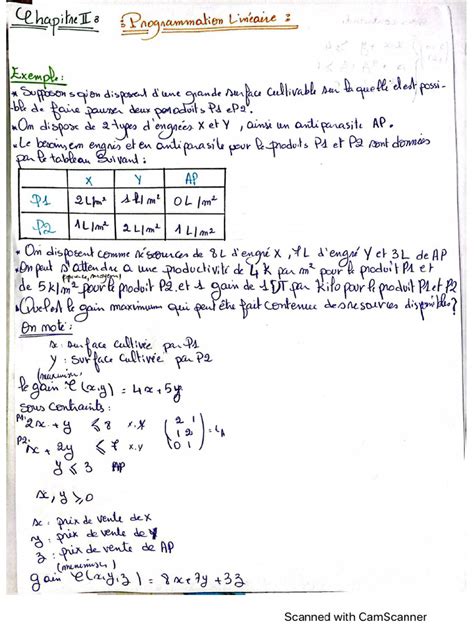 Chapitre II : Programmation Linéaire :
Exemple :
* Supposons qu'on disposent d'une grande surface cultivable sur laquelle il est possi-
ble de faire pousser deux produits P1 et P2.
* On dispose de 2 types d'engrées X et Y, ainsi un antiparasite AP.
* Le besoins en engrées et en antiparasite pour le produits P1 et P2 sont données
par le tableau suivant :
X Y AP
P1 2L/m² 1L/m² 0L/m²
P2 1L/m² 2L/m² 1L/m²
* On disposent comme résources de 8L d'engré X, 7L d'engré Y et 3L de AP
On peut s'attendre a une productivité de 4K par m² pour le produit P1 et
de 5k/m² pour le produit P2. et 1 gain de 1DT par Kilo pour le produit P1 et P2
* Quel est le gain maximum qui peut être fait contenue des resources disponibles ?
On note :
x : surface cultivée par P1
y : surface cultivée par P2
(maximiser)
le gain C(x,y) = 4x + 5y
sous contraints :
P1: 2x + y ≤ 8 x.X (2 1
P2: x + 2y ≤ 7 x.Y 1 2
y ≤ 3 AP 0 1)
x, y ≥ 0
x : prix de vente de X
y : prix de vente de Y
z : prix de vente de AP
gain C(x,y,z) = 8x + 7y + 3z
Scanned with CamScanner